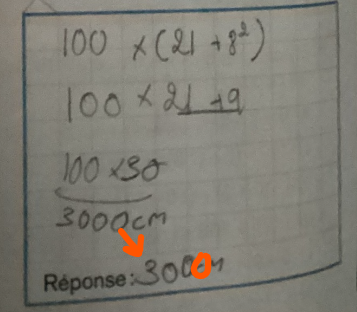 100 × (21 + 3²)
100 × 21 + 9
100 × 30
3000cm
Réponse: 300cm